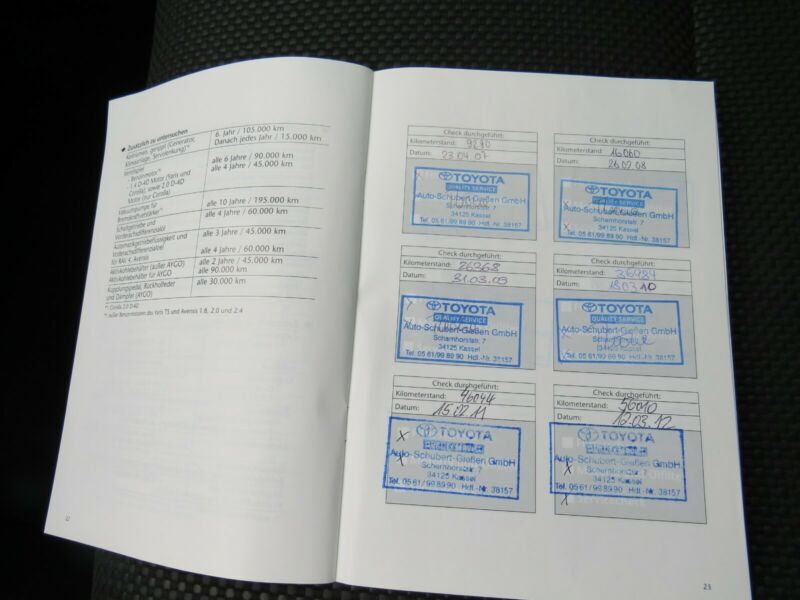 Zusätzlich zu untersuchen
Keilriemen, gerippt (Generator,
Klimaanlage, Servolenkung)*¹
6. Jahr / 105.000 km
Danach jedes Jahr / 15.000 km
Ventilspiel
- Benzinmotor*²
- 1.4 D-4D Motor (Yaris und
Corolla), sowie 2.0 D-4D
Motor (nur Corolla)
alle 6 Jahre / 90.000 km
alle 4 Jahre / 45.000 km
Vakuumpumpe für
Bremskraftverstärker*¹
alle 10 Jahre / 195.000 km
Schaltgetriebe und
Vorderachsdifferenzialöl
alle 4 Jahre / 60.000 km
Automatikgetriebeflüssigkeit und
Vorderachsdifferenzialoel
für RAV 4, Avensis
alle 3 Jahre / 45.000 km
alle 4 Jahre / 60.000 km
Aktivkohlebehälter (außer AYGO)
Aktivkohlebehälter für AYGO
alle 2 Jahre / 45.000 km
alle 90.000 km
Kupplungspedal, Rückholfeder
und Dämpfer (AYGO)
alle 30.000 km
*¹ Corolla 2.0 D-4D
*² außer Benzinmotoren des Yaris TS und Avensis 1.8, 2.0 und 2.4
22
Check durchgeführt:
Kilometerstand: 9290
Datum: 23.04.07
TOYOTA
QUALITY SERVICE
Auto-Schubert-Gießen GmbH
Scharnhorststr. 7
34125 Kassel
Tel. 05 61/99 89 90 Hdl.-Nr. 38157
Check durchgeführt:
Kilometerstand: 16060
Datum: 26.02.08
TOYOTA
QUALITY SERVICE
Auto-Schubert-Gießen GmbH
Scharnhorststr. 7
34125 Kassel
Tel. 05 61/99 89 90 Hdl.-Nr. 38157
Check durchgeführt:
Kilometerstand: 26368
Datum: 31.03.09
TOYOTA
QUALITY SERVICE
Auto-Schubert-Gießen GmbH
Scharnhorststr. 7
34125 Kassel
Tel. 05 61/99 89 90 Hdl.-Nr. 38157
Check durchgeführt:
Kilometerstand: 36984
Datum: 18.03.10
TOYOTA
QUALITY SERVICE
Auto-Schubert-Gießen GmbH
Scharnhorststr. 7
34125 Kassel
Tel. 05 61/99 89 90 Hdl.-Nr. 38157
Check durchgeführt:
Kilometerstand: 46044
Datum: 15.02.11
TOYOTA
Auto-Schubert-Gießen GmbH
Scharnhorststr. 7
34125 Kassel
Tel. 05 61/99 89 90 Hdl.-Nr. 38157
Check durchgeführt:
Kilometerstand: 56010
Datum: 12.03.12
TOYOTA
Auto-Schubert-Gießen GmbH
Scharnhorststr. 7
34125 Kassel
Tel. 05 61/99 89 90 Hdl.-Nr. 38157
23